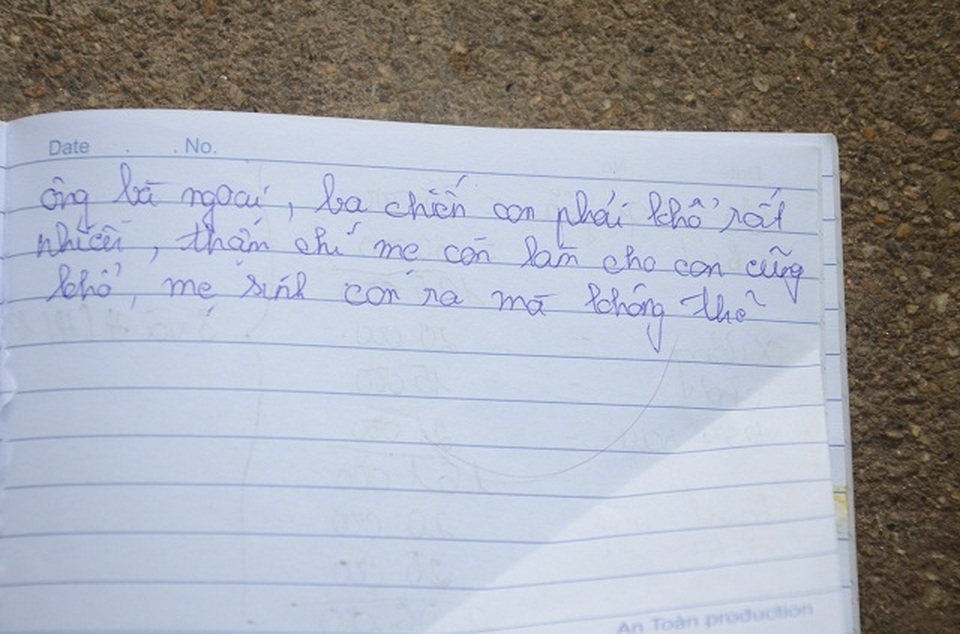 Date . . No.
ông bà ngoại, ba chiến con phải khổ rất
nhiều, thậm chí mẹ còn làm cho con cũng
khổ, mẹ sinh con ra mà không thể
An Toàn production